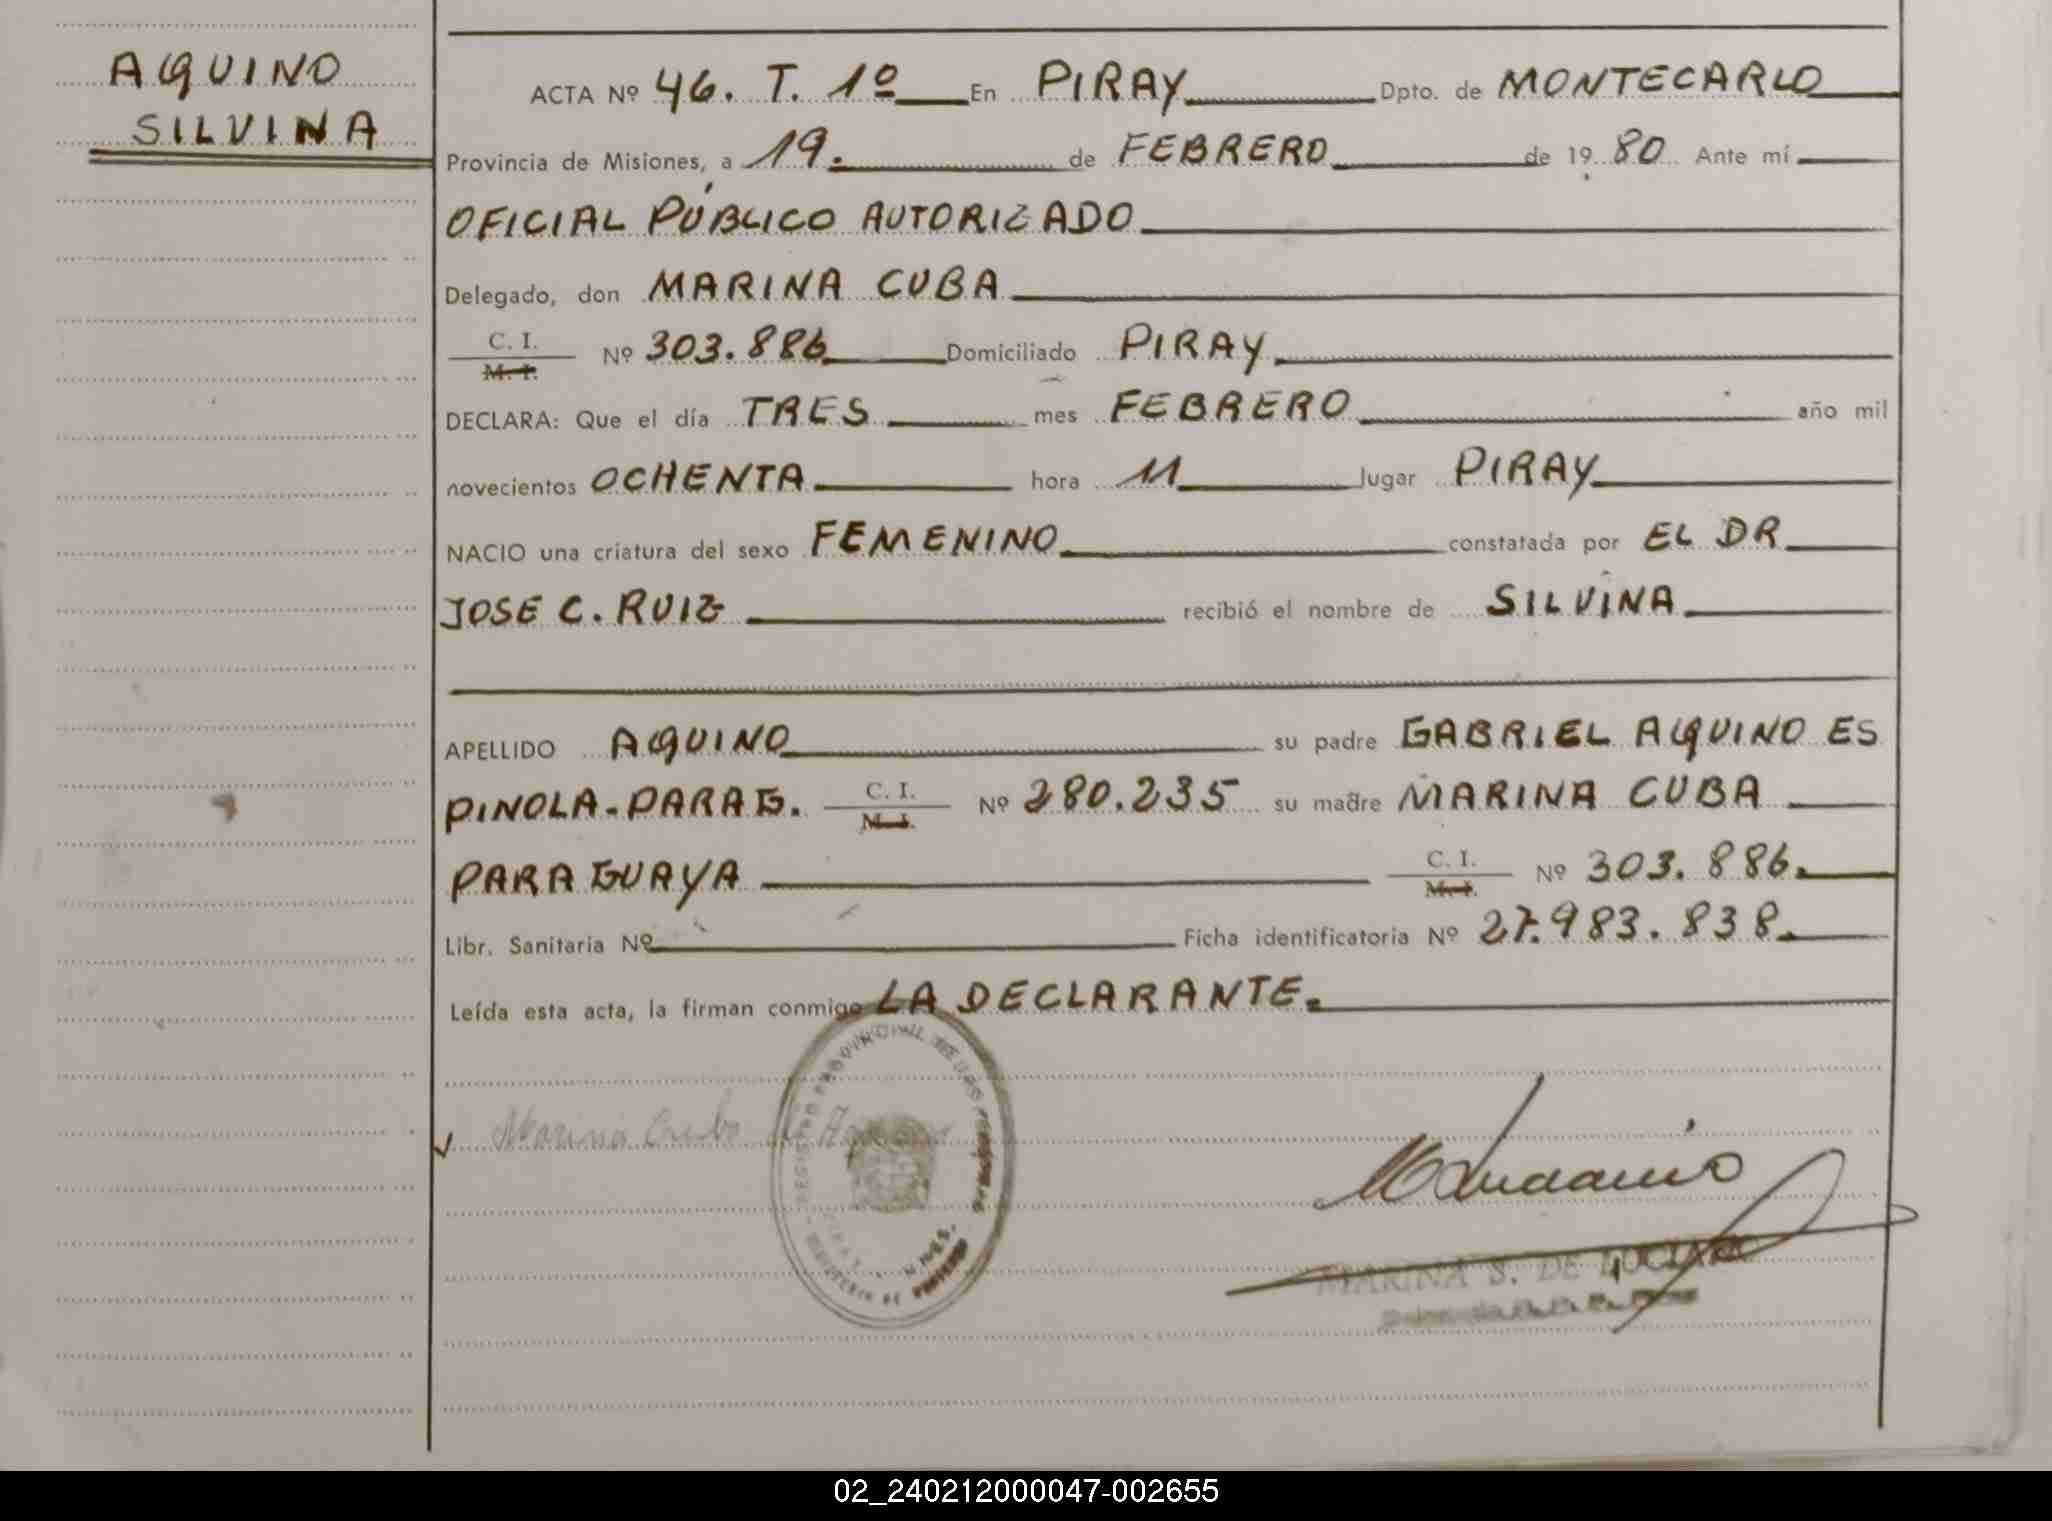 AQUINO
SILVINA
ACTA Nº 46. T. 1º En PIRAY Dpto. de MONTECARLO
Provincia de Misiones, a 19. de FEBRERO de 1980 Ante mí
OFICIAL PÚBLICO AUTORIZADO
Delegado, don MARINA CUBA
C. I.
M. I.
Nº 303.886 Domiciliado PIRAY
DECLARA: Que el día TRES mes FEBRERO año mil
novecientos OCHENTA hora 11 lugar PIRAY
NACIO una criatura del sexo FEMENINO constatada por EL DR
JOSE C. RUIZ recibió el nombre de SILVINA
APELLIDO AQUINO su padre GABRIEL AQUINO ES
PINOLA-PARAG. C. I. M. I. Nº 280.235 su madre MARINA CUBA
PARAGUAYA C. I. M. I. Nº 303.886.
Libr. Sanitaria Nº Ficha identificatoria Nº 27.983.838.
Leída esta acta, la firman conmigo LA DECLARANTE.
Marina Cuba de
REGISTRO PROVINCIAL DE
MINISTERIO DE
MARINA S. DE
02_240212000047-002655